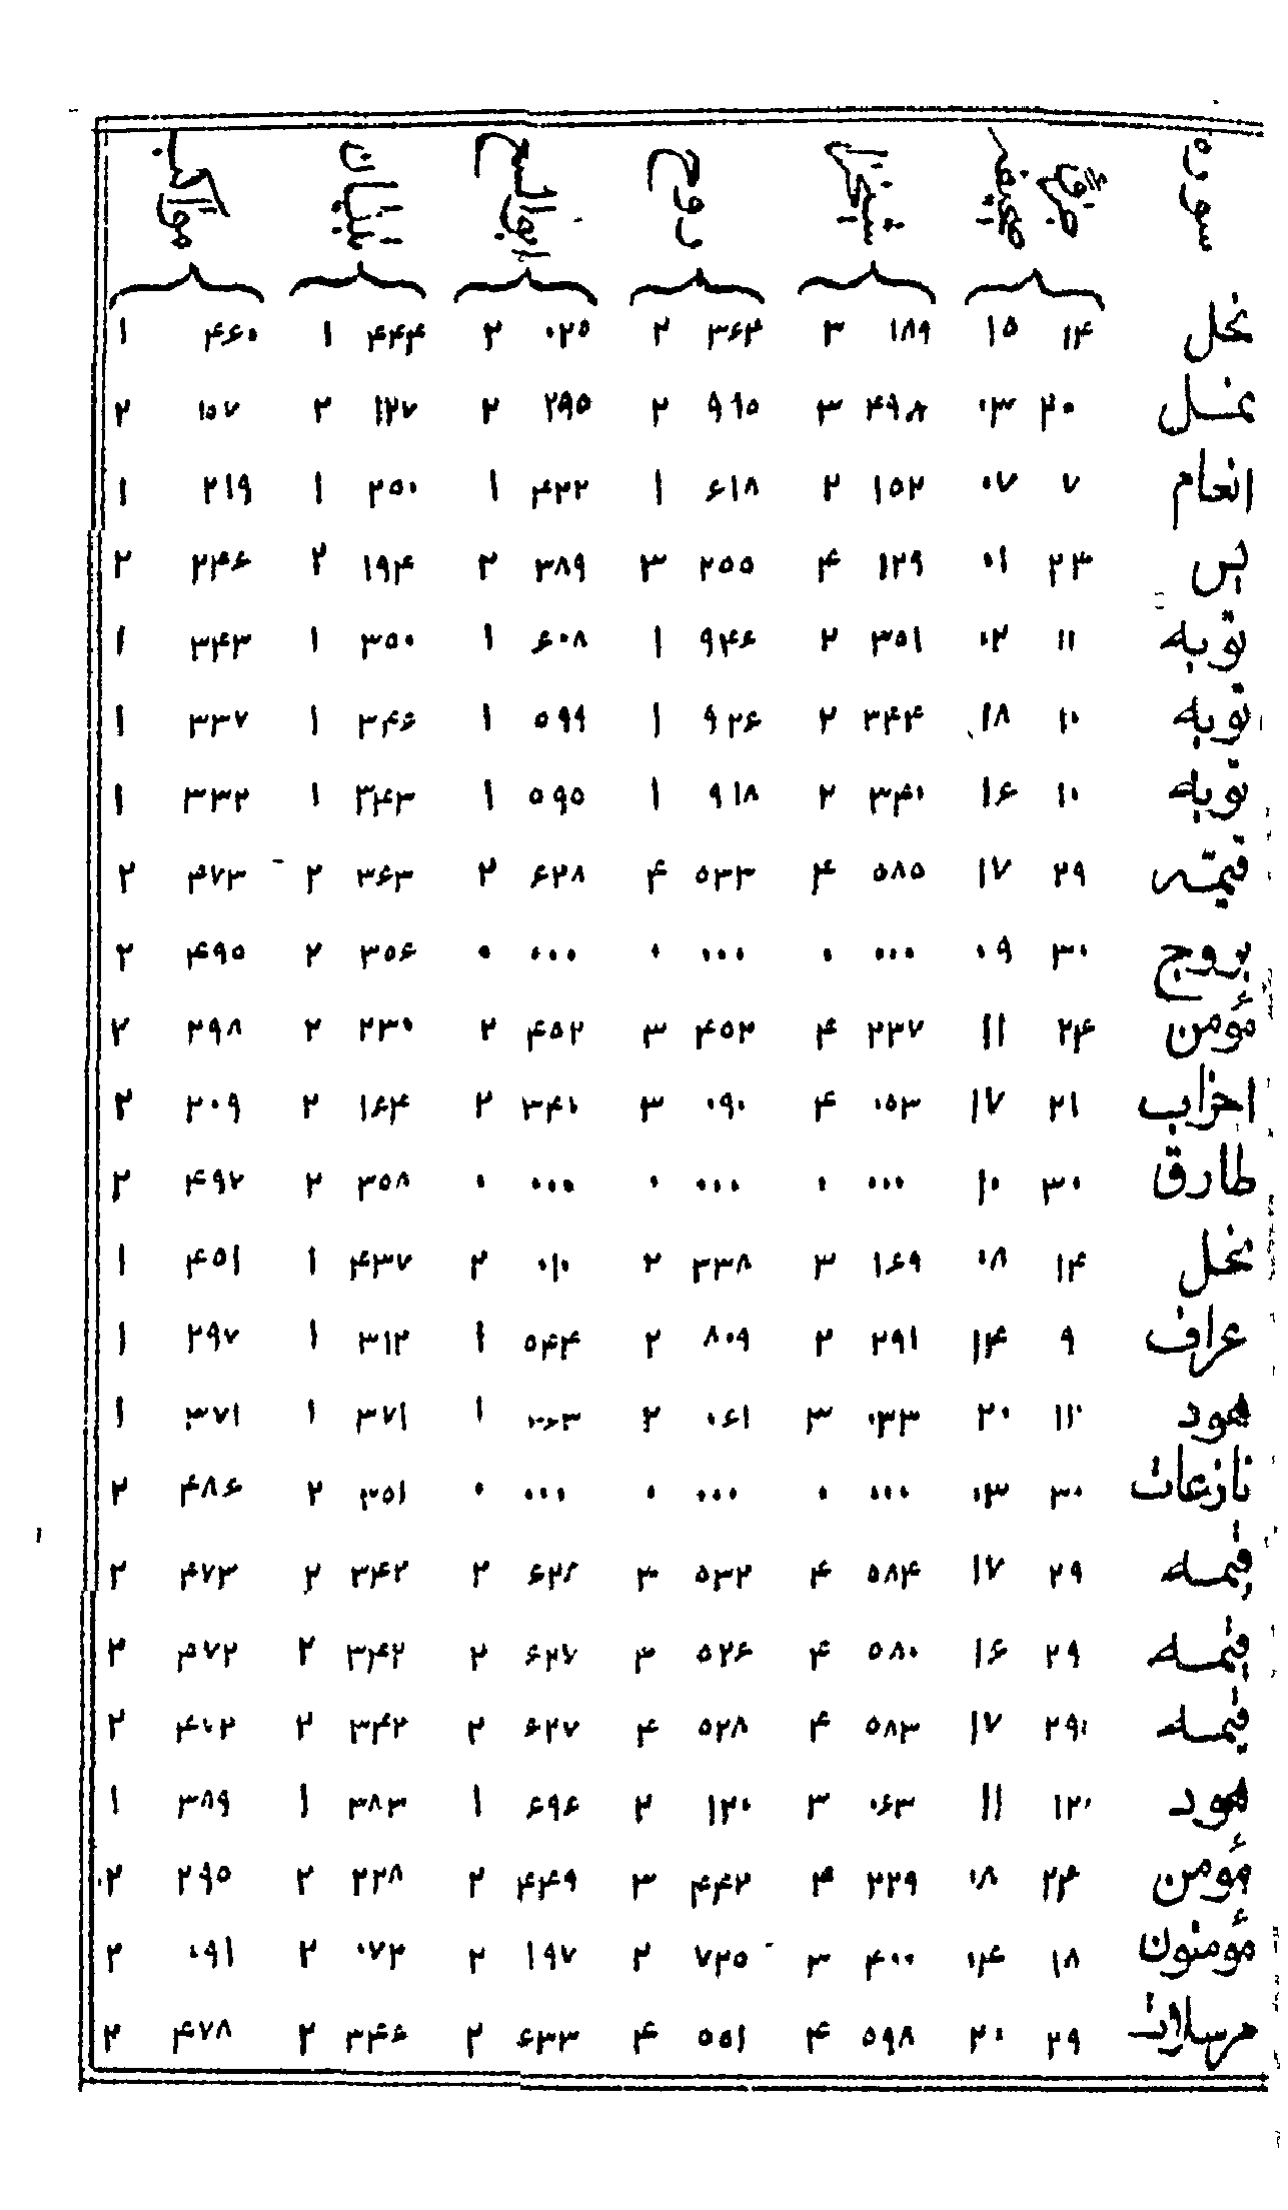 سوره جزء قرآن صحیفه کشف روح ابوالفتوح تبیان مواهب
نحل ۱۴ ۱۵ ۱۸۹ ۳ ۳۶۲ ۲ ۰۲۵ ۲ ۴۴۴ ۱ ۴۶۰ ۱
نمل ۲۰ ۰۳ ۴۹۸ ۳ ۹۶۵ ۲ ۲۹۵ ۲ ۱۲۷ ۲ ۱۵۷ ۲
انعام ۷ ۰۷ ۱۵۲ ۲ ۶۱۸ ۱ ۴۲۲ ۱ ۲۵۰ ۱ ۲۱۹ ۱
یس ۲۳ ۰۱ ۱۲۹ ۴ ۲۵۵ ۳ ۳۸۹ ۲ ۱۹۴ ۲ ۲۴۶ ۲
توبه ۱۱ ۰۲ ۳۵۱ ۲ ۹۴۶ ۱ ۶۰۸ ۱ ۳۵۰ ۱ ۳۴۳ ۱
توبه ۱۰ ۱۸ ۳۴۴ ۲ ۹۲۶ ۱ ۵۹۹ ۱ ۳۴۶ ۱ ۳۳۷ ۱
توبه ۱۰ ۱۶ ۳۴۰ ۲ ۹۱۸ ۱ ۵۹۵ ۱ ۳۴۳ ۱ ۳۳۲ ۱
قیمّه ۲۹ ۱۷ ۵۸۵ ۴ ۵۳۳ ۴ ۶۲۸ ۲ ۳۶۳ ۲ ۴۷۳ ۲
بروج ۳۰ ۰۹ ۰۰۰ ۰ ۰۰۰ ۰ ۰۰۰ ۰ ۳۵۶ ۲ ۴۹۵ ۲
مؤمن ۲۴ ۱۱ ۲۳۷ ۴ ۴۵۲ ۳ ۴۵۲ ۲ ۲۳۰ ۲ ۲۹۸ ۲
احزاب ۲۱ ۱۷ ۰۵۳ ۴ ۰۹۰ ۳ ۳۴۰ ۲ ۱۶۴ ۲ ۲۰۹ ۲
طارق ۳۰ ۱۰ ۰۰۰ ۰ ۰۰۰ ۰ ۰۰۰ ۰ ۳۵۸ ۲ ۴۹۲ ۲
نحل ۱۴ ۰۸ ۱۶۹ ۳ ۳۳۸ ۲ ۰۱۰ ۲ ۴۳۷ ۱ ۴۵۱ ۱
عراف ۹ ۱۴ ۲۹۱ ۲ ۸۰۹ ۲ ۵۴۴ ۱ ۳۱۲ ۱ ۲۹۷ ۱
هود ۱۲ ۲۰ ۰۳۳ ۳ ۰۶۱ ۲ ۱ ۳۷۱ ۱ ۳۷۱ ۱
نازعات ۳۰ ۰۳ ۰۰۰ ۰ ۰۰۰ ۰ ۰۰۰ ۰ ۳۵۱ ۲ ۴۸۶ ۲
قیمه ۲۹ ۱۷ ۵۸۴ ۴ ۵۳۲ ۳ ۶۲۸ ۲ ۳۴۲ ۲ ۴۷۳ ۲
قیمه ۲۹ ۱۶ ۵۸۰ ۴ ۵۲۶ ۳ ۶۲۷ ۲ ۳۴۲ ۲ ۴۷۲ ۲
قیمه ۲۹ ۱۷ ۵۸۳ ۴ ۵۲۸ ۴ ۶۲۷ ۲ ۳۴۲ ۲ ۲
هود ۱۲ ۱۱ ۰۶۳ ۳ ۱۲۰ ۲ ۶۹۶ ۱ ۳۸۳ ۱ ۳۸۹ ۱
مؤمن ۲۴ ۰۸ ۲۲۹ ۴ ۴۴۲ ۳ ۴۴۹ ۲ ۲۲۸ ۲ ۲۹۵ ۲
مؤمنون ۱۸ ۰۴ ۴۰۰ ۳ ۷۲۵ ۲ ۱۹۷ ۲ ۰۷۲ ۲ ۰۹۱ ۲
مرسلات ۲۹ ۲۰ ۵۹۸ ۴ ۵۵۱ ۴ ۶۳۳ ۲ ۳۴۶ ۲ ۴۷۸ ۲